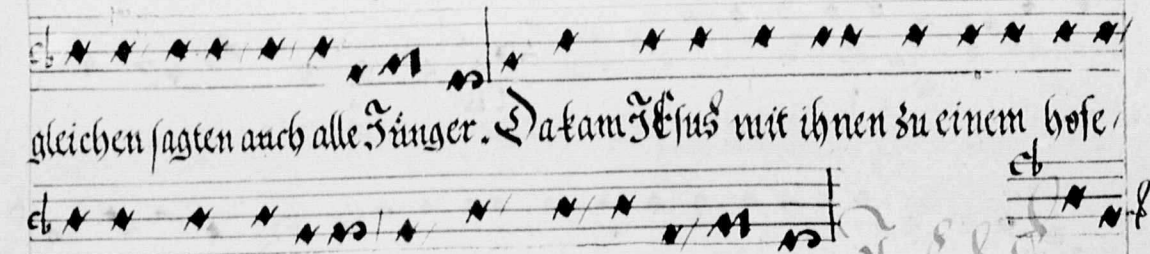 gleichen sagten auch alle Jünger. Da kam JEsus mit ihnen zu einem hofe,